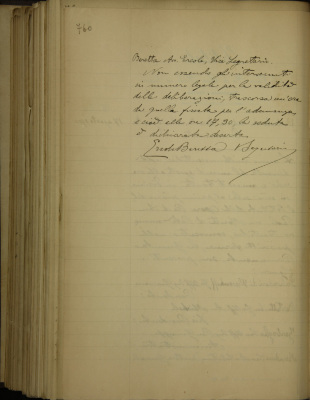 760
Av. Ercole, Vice Segretario.
Non essendo gli intervenuti
in numero legale per la validità
delle deliberazioni, trascorsa un'ora
da quella fissata per l'adunanza,
e cioè alle ore 17,30, la seduta
è dichiarata deserta.